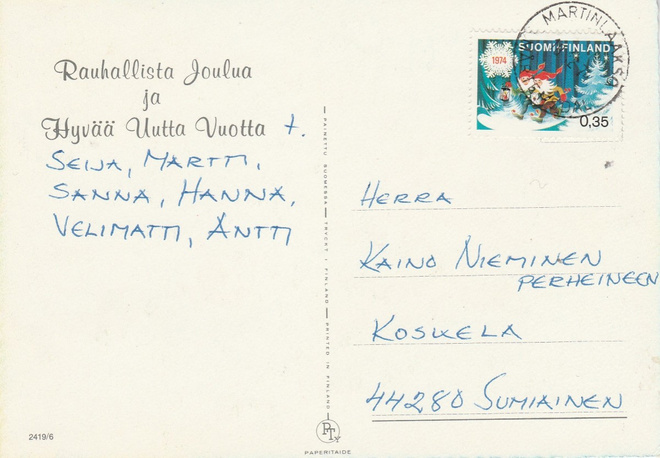 Rauhallista Joulua
ja
Hyvää Uutta Vuotta t.
SEIJA, MARTTI,
SANNA, HANNA,
VELIMATTI, ANTTI
PAINETTU SUOMESSA — TRYCKT I FINLAND — PRINTED IN FINLAND
2419/6
PTy
PAPERITAIDE
MARTINLAAKSO
SUOMI-FINLAND
1974
0,35
HERRA
KAINO NIEMINEN
PERHEINEEN
KOSKELA
44280 SUMIAINEN